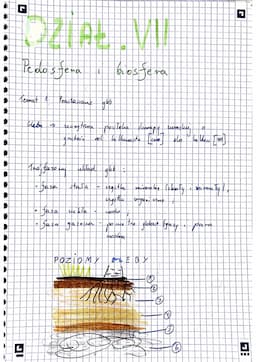 DZIAŁ. VII
Pedosfera i biosfera
Temat 1 Powstawanie gleb
Gleba - zewnętrzna powłoka skorupy ziemskiej, o
grubości od kilkunastu [cm] do kilku [m]
Trójfazowy układ gleb:
- faza stała - cząstki mineralne (skały i minerały),
cząstki organiczne,
- faza ciekła - woda,
- faza gazowa - powietrze glebowe (gazy), para
wodna
POZIOMY GLEBY